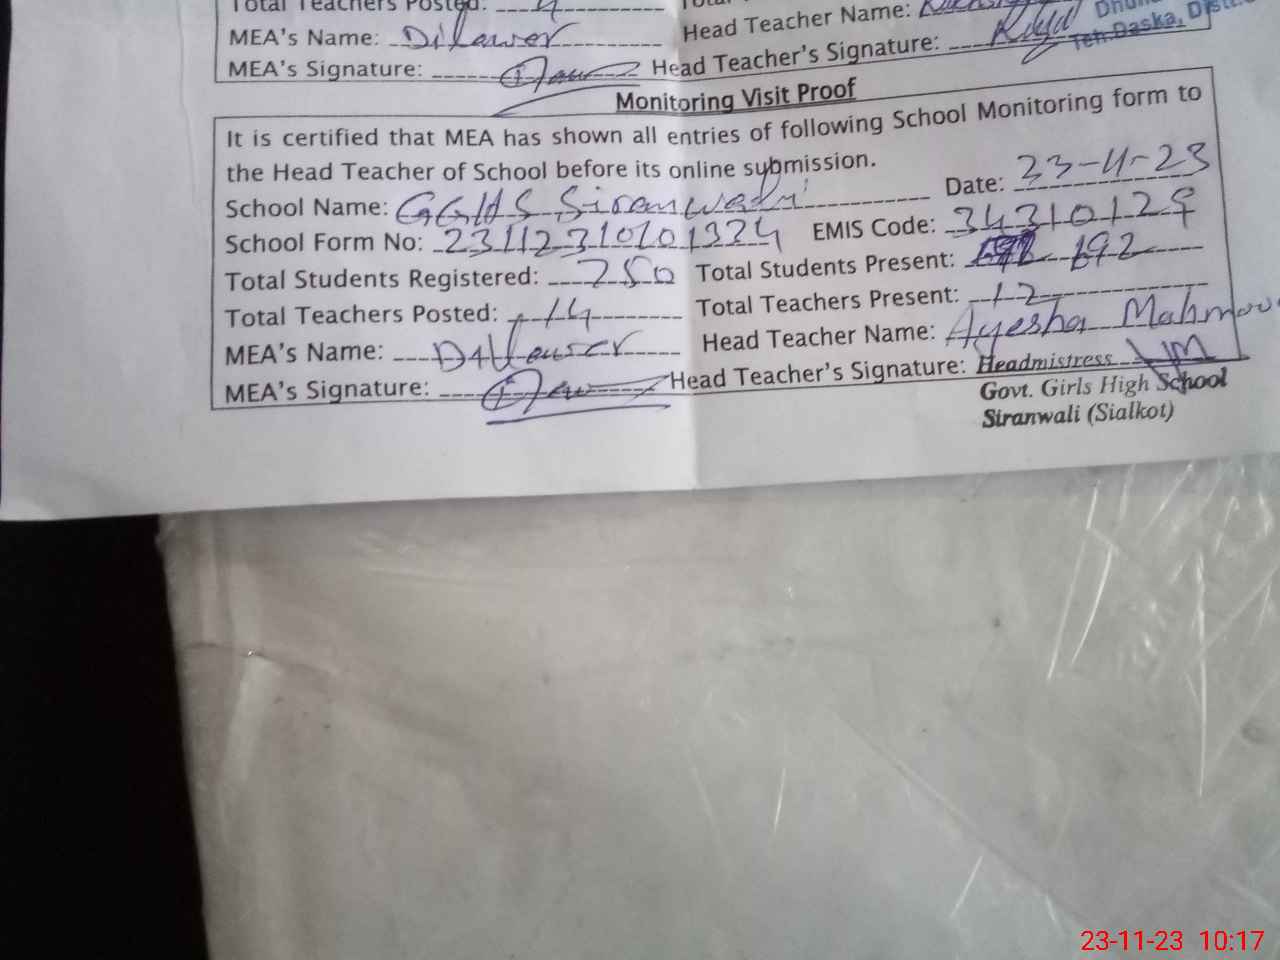 Total Teachers Posted: 4
Head Teacher Name:
MEA's Name: Dilawer
Head Teacher's Signature:
Teh.Daska, Distt.
MEA's Signature:
Monitoring Visit Proof
It is certified that MEA has shown all entries of following School Monitoring form to
the Head Teacher of School before its online submission.
School Name: GGHS Siranwali Date: 23-11-23
School Form No: 23112310101334 EMIS Code: 34310129
Total Students Registered: 750 Total Students Present: 692
Total Teachers Posted: 14 Total Teachers Present: 12
MEA's Name: Dilawer Head Teacher Name: Ayesha Mahmoo
MEA's Signature: Head Teacher's Signature: Headmistress
Govt. Girls High School
Siranwali (Sialkot)
23-11-23 10:17